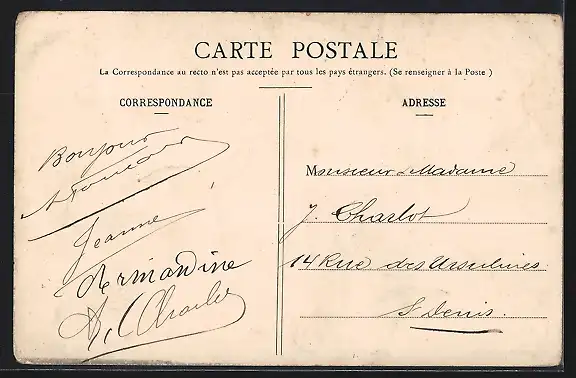 CARTE POSTALE
La Correspondance au recto n'est pas acceptée par tous les pays étrangers. (Se renseigner à la Poste)
CORRESPONDANCE
Bonjour
Jeanne
Armandine
ADRESSE
Monsieur & Madame
J. Charlot
14 Rue des Ursulines
St Denis.